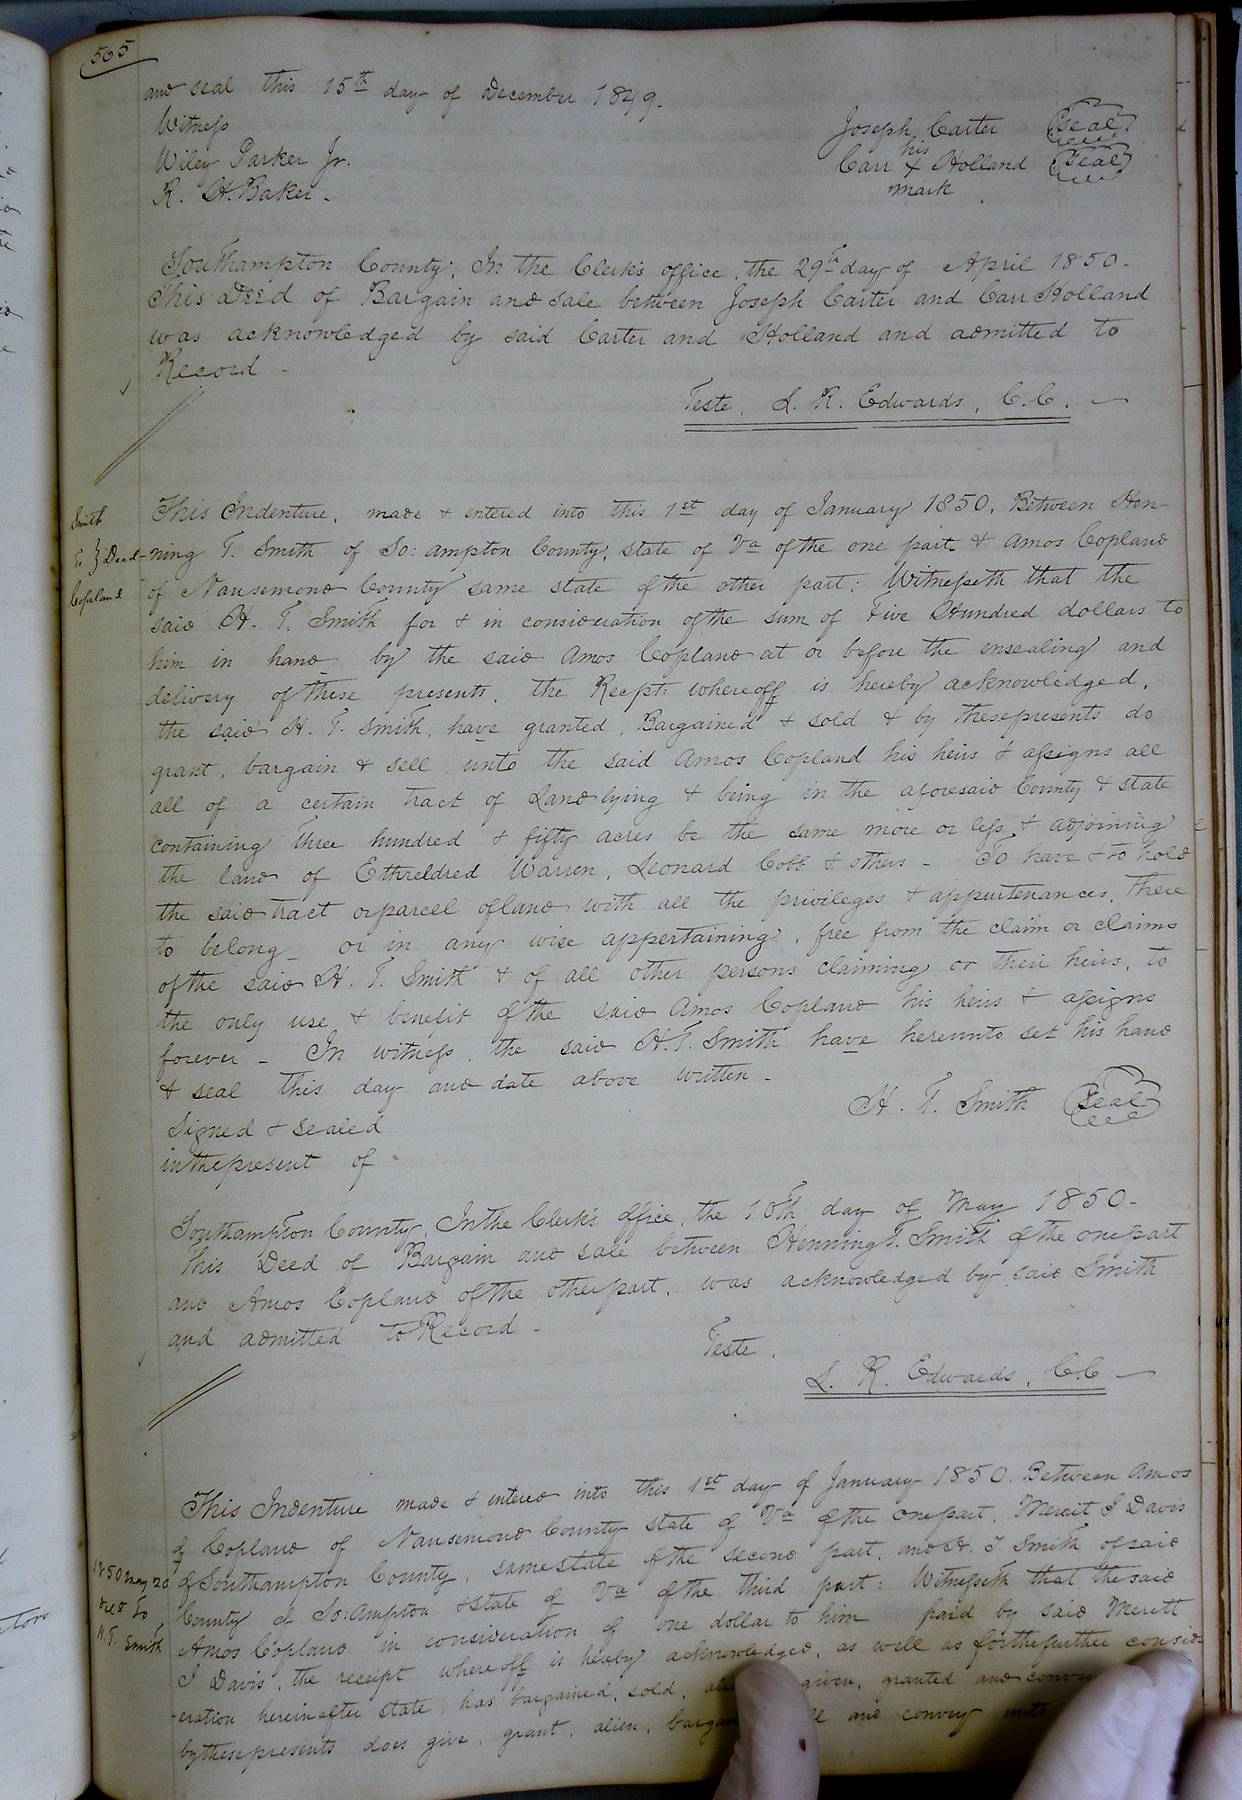 565
and seal this 15th day of December 1849.
Witness
Wiley Parker Jr.
R. H. Baker.
Joseph Carter Seal
his
Carr x Holland Seal
mark
Southampton County; In the Clerk's office, the 29th day of April 1850.
This Deed of Bargain and sale between Joseph Carter and Carr Holland
was acknowledged by said Carter and Holland and admitted to
Record -
Teste, L. R. Edwards, C.C.
Smith
To } Deed
Copeland
This Indenture, made & entered into this 1st day of January 1850, Between Hen-
ning T. Smith of So:ampton County, state of Va of the one part & Amos Copland
of Nansemond County same state of the other part: Witnesseth that the
said H. T. Smith for & in consideration of the sum of Five Hundred dollars to
him in hand by the said Amos Copland at or before the ensealing and
delivery of these presents, the Recpt: whereoff is hereby acknowledged,
the said H. T. Smith, have granted, Bargained & sold & by these presents do
grant, bargain & sell unto the said Amos Copland his heirs & assigns all
all of a certain tract of Land lying & being in the aforesaid County & state
containing Three hundred & fifty acres be the same more or less, & adjoining
the land of Ethreldred Warren, Leonard Cobb & others - To have & to hold
the said tract or parcel of land with all the privileges & appurtenances, there
to belong - or in any wise appertaining, free from the claim or claims
of the said H. T. Smith & of all other persons claiming or their heirs, to
the only use & benefit of the said Amos Copland his heirs & assigns
forever - In witness, the said H. T. Smith have hereunto set his hand
& seal this day and date above written -
H. T. Smith Seal
Signed & sealed
in the present of
Southampton County, In the Clerk's office, the 10th day of May 1850-
This Deed of Bargain and sale between Henning T. Smith of the one part
and Amos Copland of the other part, was acknowledged by said Smith
and admitted to Record -
Teste,
L. R. Edwards, C.C
This Indenture made & entered into this 1st day of January 1850. Between Amos
of Copland of Nansemond County state of Va of the one part, Merrit J Davis
of Southampton County, same state of the second part, and H. T. Smith of said
1850 May 20
Del'd To
H. T. Smith
County of So:ampton & state of Va of the third part: Witnesseth that the said
Amos Copland in consideration of one dollar to him paid by said Merett
J Davis, the receipt whereoff is hereby acknowledged, as well as for the further consid-
eration hereinafter state, has bargained, sold, given, granted and
by these presents does give, grant, alien, and convey unto